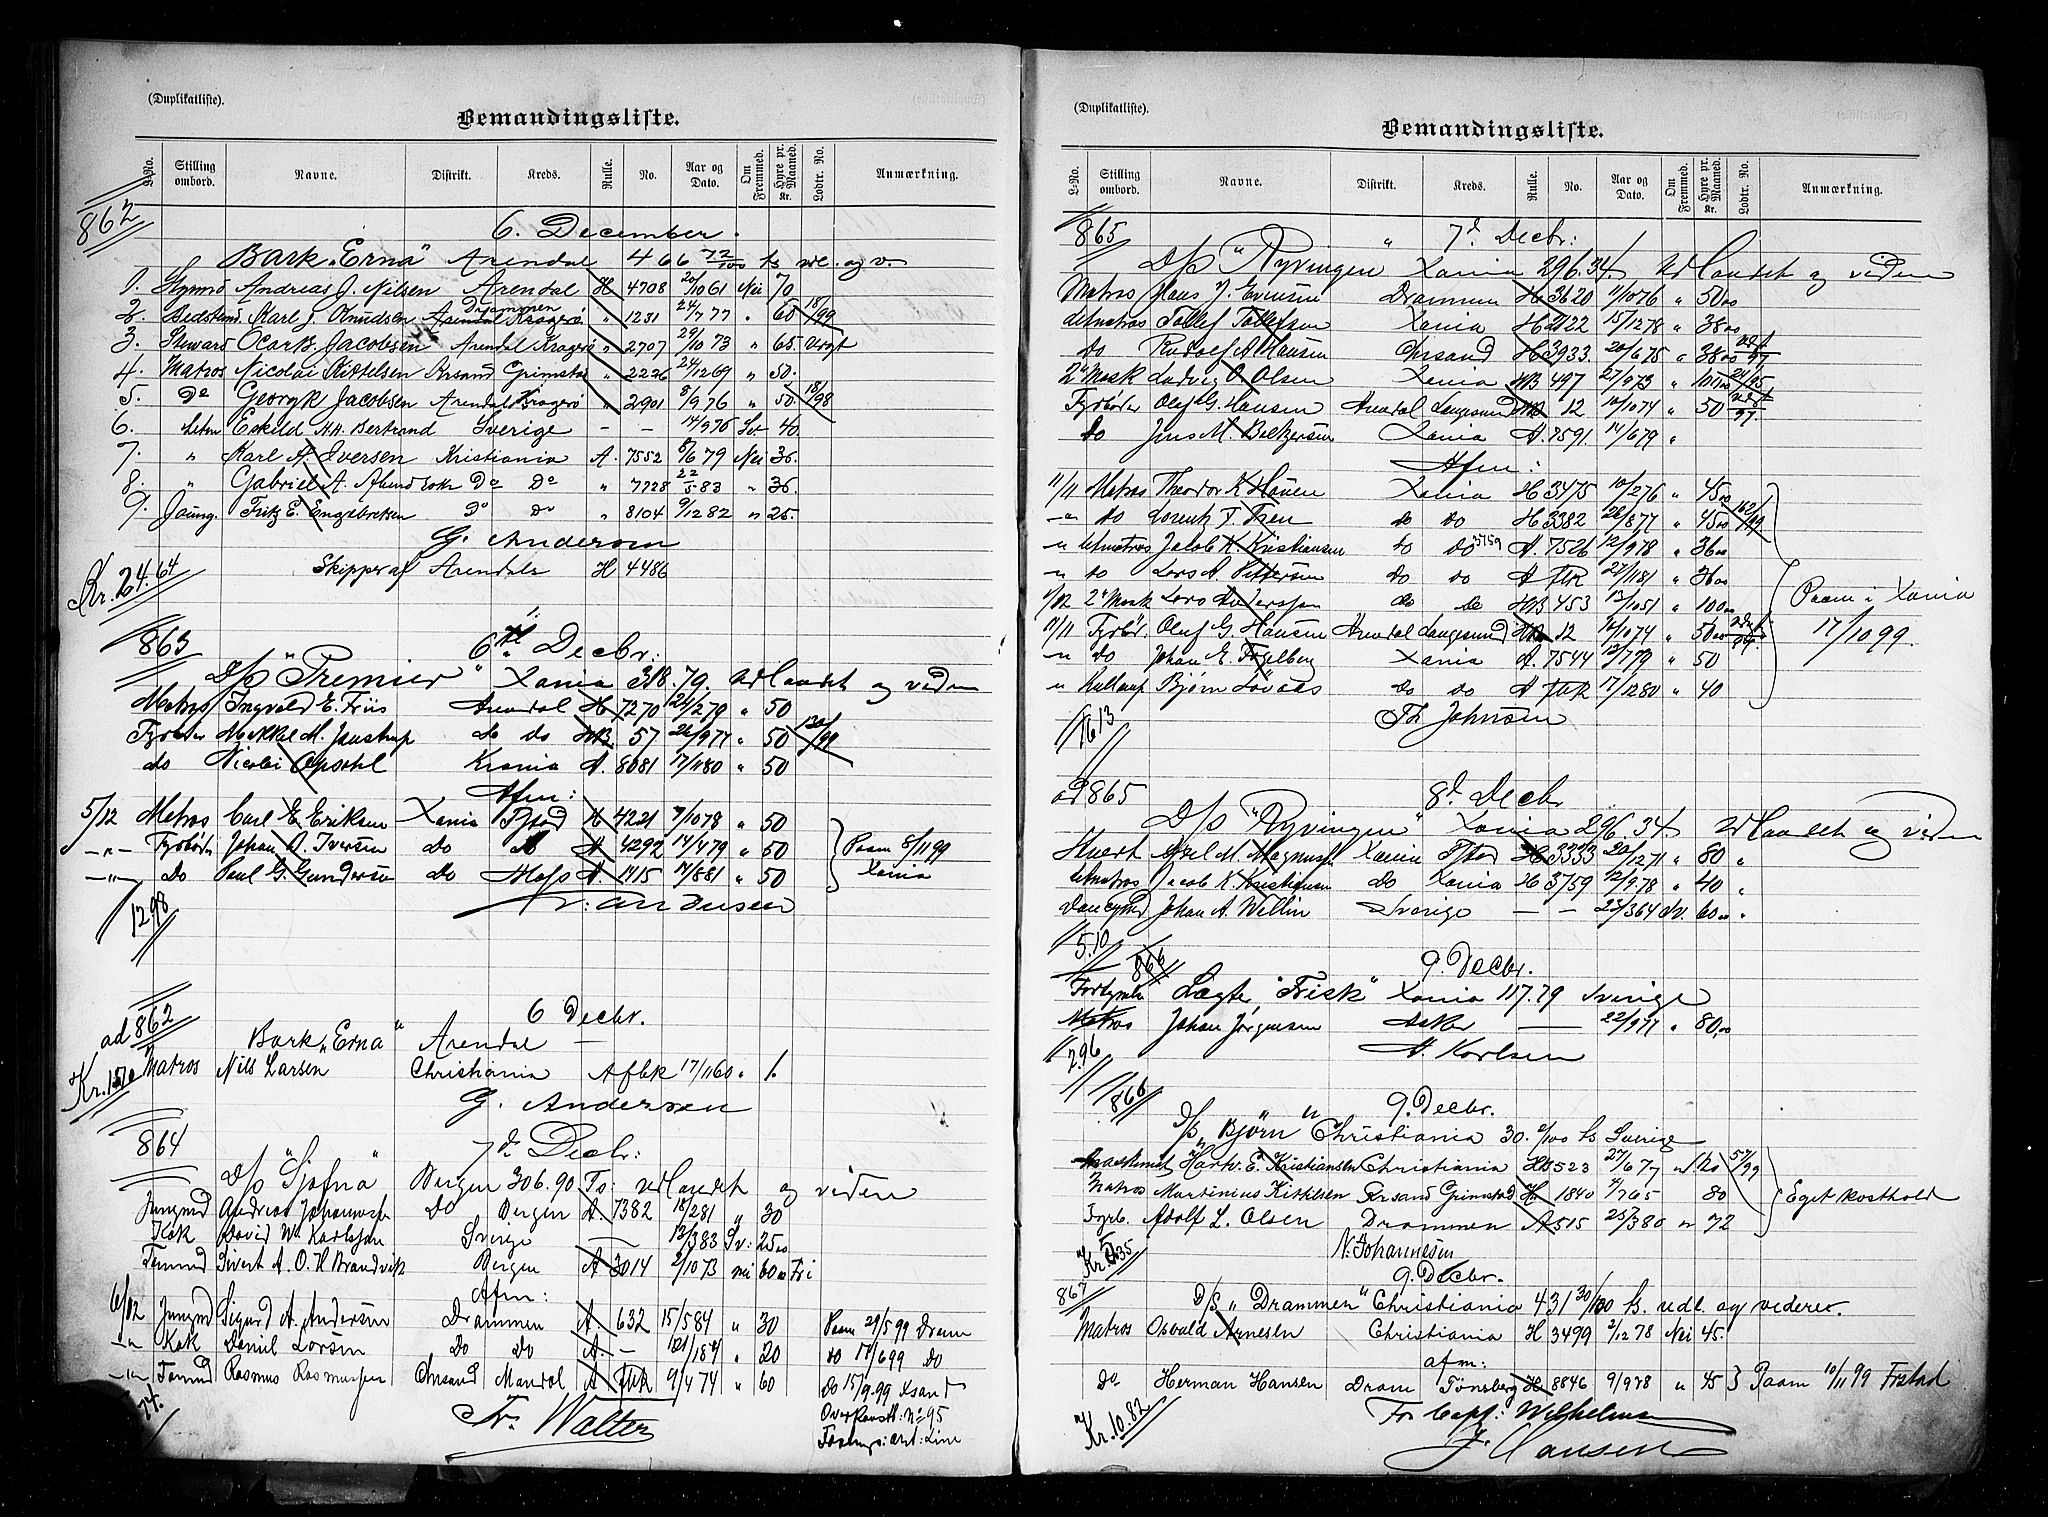 (Duplikatliste).
Bemandingsliste.
L-No. Stilling ombord. Navne. Distrikt. Kreds. Rulle. No. Aar og Dato. Om Fremmed. Hyre pr. Maaned. Kr. Lodtr. No. Anmærkning.
862 6. December.
Bark "Erna" Arendal 466 72/100 ts udl. og v.
1. Styrm Andreas J. Nilsen Arendal H 4708 20/10 61 Nei 70
2. Bedstmd. Karl J. Knudsen Drammen Arendal Kragerö " 1231 24/7 77 " 60 18/99
3. Steward Oscar B. Jacobsen Arendal Kragerö " 2707 29/10 73 " 65.
4. Matros Nicolai Kittelsen Krsand Grimstad " 2226 24/12 69 " 50.
5. Do Georg K Jacobsen Arendal Kragerö " 2901 8/9 76 " 50 18/98
6. Eskild Bertrand Sverige - - 14/9 76 Sv. 40.
7. " Karl A. Iversen Kristiania A. 7552 8/6 79 Nei 36.
8. " Gabriel A. Do Do " 7728 22/5 83 " 36.
9. Joung. Fritz E. Engebretsen Do Do " 8104 9/12 82 " 25.
G. Anderson
Skipper af Arendals H 4486
Kr. 24.64
863 6te Decbr:
D/s "Premier" Xania 318.79 Udlandet og videre
Matros Ingvald E. Friis Arendal H 7270 26/2 79 " 50
Fyrböder Mikkel M. Jenstrup do do HB 57 26/9 77 " 50 130/99
do Nicolai Opsahl Krania A. 8081 17/11 80 " 50
Afm:
5/12 Matros Carl E. Eriksen Xania Fstad H 4221 7/10 78 " 50
-"- Fyrböder Johan A. Iversen do do A 4292 14/4 79 " 50 Paam 8/11 99
-"- Do Paul G. Gundersen do Moss A. 1115 17/8 81 " 50 Xania
12.98
ad 862 6 Decbr.
Bark "Erna" Arendal —
Kr. 1.51 Matros Nils Larsen Christiania A fbk 17/11 60 " 1.
G. Anderson
864 7de Decbr:
D/s "Sjofna" Bergen 306.90 Ts: Udlandet og videre
Jungmd Andreas Johannesen Do Bergen A. 7382 18/2 81 " 30
Kok David W. Karlsson Sverige — 12/3 83 Sv: 25.00
Tømmd Sivert A. O. H Brandvik Bergen A 3014 2/10 73 nei 60.00 Fri
Afm:
6/12 Jungmd Sigurd A. Andersen Drammen A 632 15/5 84 " 30 Paam 29/5 99 Dram
-"- Kok Daniel Larsen Do Do A. - 12/1 84 " 20 do 17/6 99 do
-"- Tømmd Rasmus Rasmussen Chrsand Mandal A fbk 9/4 74 " 60 do 15/9.99 Xsand
Fr. Walter
No 95
(Duplikatliste).
Bemandingsliste.
L-No. Stilling ombord. Navne. Distrikt. Kreds. Rulle. No. Aar og Dato. Om Fremmed. Hyre pr. Maaned. Kr. Lodtr. No. Anmærkning.
865 " 7d Decbr:
D/s "Ryvingen Xania 296.34. Udlandet og videre
Matros Hans J. Evensen Drammen H 3620 11/10 76 " 50.00
Letmatros Tollef Tollefsen Xania H 2122 15/12 78 " 38.00
do Rudolf A. Hansen Chrsand H 3933 20/6 75 " 38.00
2d Mask Ludvig O. Olsen Xania HB 497 27/9 73 " 100.00 21/95
Fyrböder Olaf G. Hansen Arendal Langesund HB 12 10/10 74 " 50
do Jens M. Xania A. 8591 14/6 79 "
Afm:
11/11 Matros Theodor K. Hauen Xania H 3475 10/2 76 " 45.00
-"- do Lorentz F. Tren do do H 3382 26/8 77 " 45.00 162/99
-"- Letmatros Jacob K. Kristiansen do do 3759 A. 7526 12/9 78 " 36.00
-"- do Lars A. Pettersen do do A fbk 27/11 81 " 36.00
1/12 2d Mask Lars Anderssen do do HB 453 13/10 51 " 100.00 Paam i Xania
11/11 Fyrbö. Oluf G. Hansen Arendal Langesund HB 12 10/10 74 " 50.00 17/10 99.
-"- do Johan E. Fogelberg Xania A. 7544 12/7 79 " 50
" Kullemp Bjørn Lövaas do do A fbk 17/12 80 " 40
16.13 Th Johnsen
ad 865 8d. Decbr
D/s "Ryvingen" Xania 296.34 Udlandet og videre
Stuert Axel M. Magnussen Xania Fstad H 3333 20/12 71 " 80 "
Letmatros Jacob K. Kristiansen do Xania H 3759 12/9.78 " 40 "
Johan A. Wellin Sverige — - 23/3 64 Sv. 60.00 "
5.10
866 9. Decbr.
Lægte "Frisk" Xania 117.79 Sverige
Matros Johan Jörgensen Asker — 22/9 77 " 80.00
2.96 A. Karlsen
866 9. Decbr.
D/s "Björn" Christiania 30. 2/100 ts Sverige
Maskinist Hartv. E. Kristiansen Christiania HB 523 27/6 77 " 120 57/99
Matros Martinius Kittelsen Krsand Grimstad H 1840 4/7 65 80 Eget kosthold
Fyrb. Adolf L. Olsen Drammen A 515 25/3 80 " 72
N. Johannesen
867 9. Decbr.
D/s "Drammen" Christiania 431 30/100 ts. udl. og videre.
Matros Osvald Arnesen Christiania H 3499 2/12 78 Nei 45.
afm:
Do Herman Hansen Dram Tönsberg H 8846 9/9 78 " 45 } Paam 10/11 99 Frstad
Kr. 10.82 For Capt: Wilhelmsen
J. Hansen